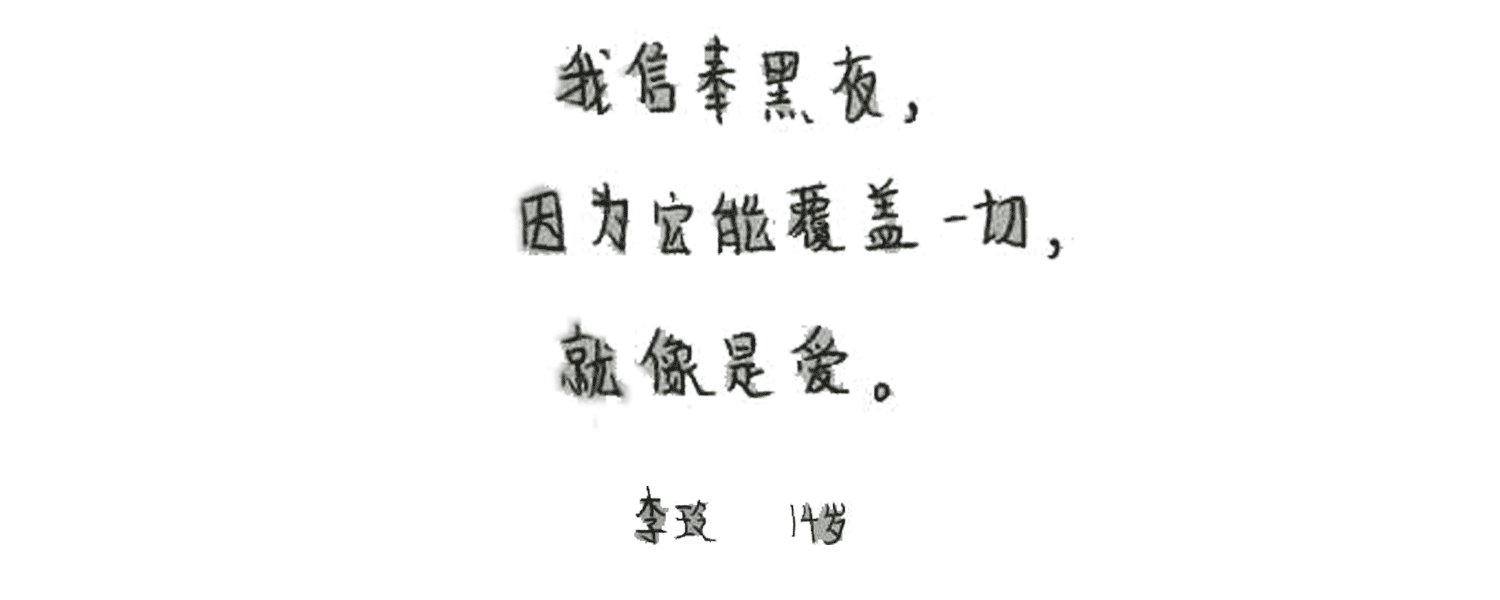 我信奉黑夜，
因为它能覆盖一切，
就像是爱。
李玫 14岁